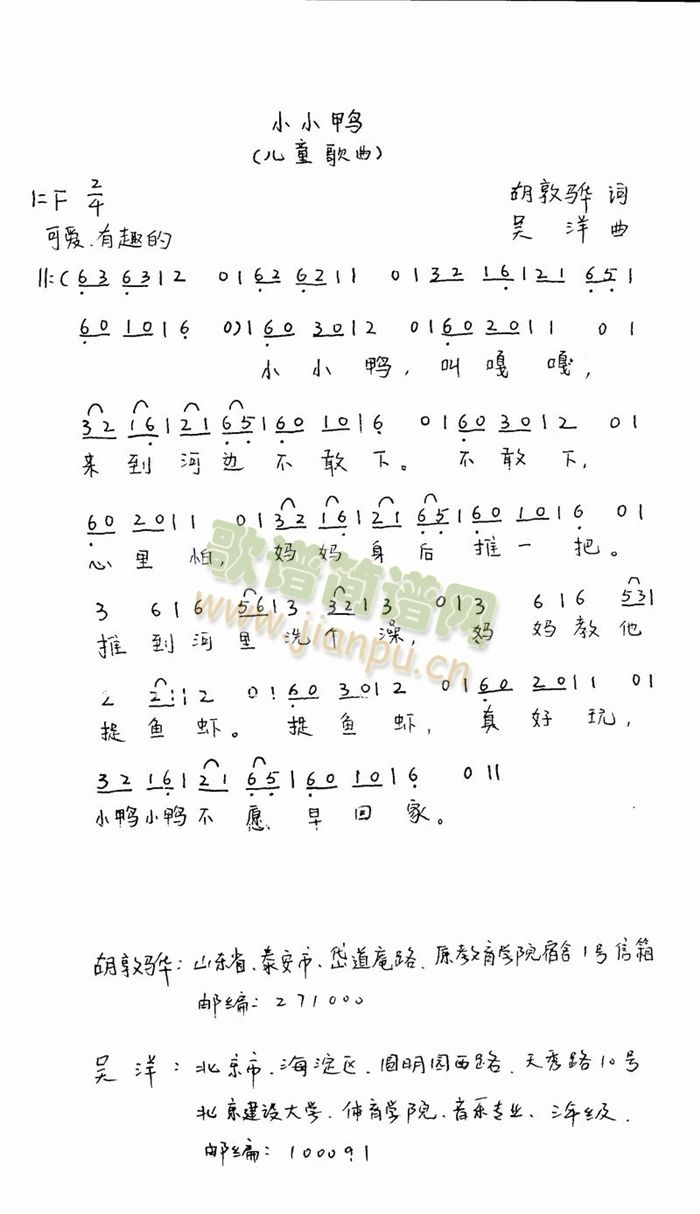 小小鸭
(儿童歌曲)
1=F 2/4
胡敦骅 词
可爱、有趣的
吴 洋 曲
‖:( 63 63 | 2 0 | 62 62 | 1 0 | 32 16 | 21 65 |
60 10 | 6 0) | 60 30 | 2 0 | 60 20 | 1 0 |
小 小 鸭, 叫 嘎 嘎,
32 16 | 21 65 | 60 10 | 6 0 | 60 30 | 2 0 |
来 到 河 边 不 敢 下。 不 敢 下,
60 20 | 1 0 | 32 16 | 21 65 | 60 10 | 6 0 |
心 里 怕, 妈 妈 身 后 推 一 把。
3 6 | 6 56 | 3 32 | 3 0 | 3 6 | 6 53 |
推 到 河 里 洗 个 澡, 妈 妈 教 他
2 21 | 2 0 | 60 30 | 2 0 | 60 20 | 1 0 |
捉 鱼 虾。 捉 鱼 虾, 真 好 玩,
32 16 | 21 65 | 60 10 | 6 0 ‖
小鸭小鸭不 愿 早 回 家。
歌谱简谱网
www.jianpu.cn
胡敦骅:山东省、泰安市、岱道庵路、原教育学院宿舍1号信箱
邮编:271000
吴 洋:北京市、海淀区、圆明园西路、天秀路10号
北京建设大学、体育学院、音乐专业、三年级.
邮编:100091